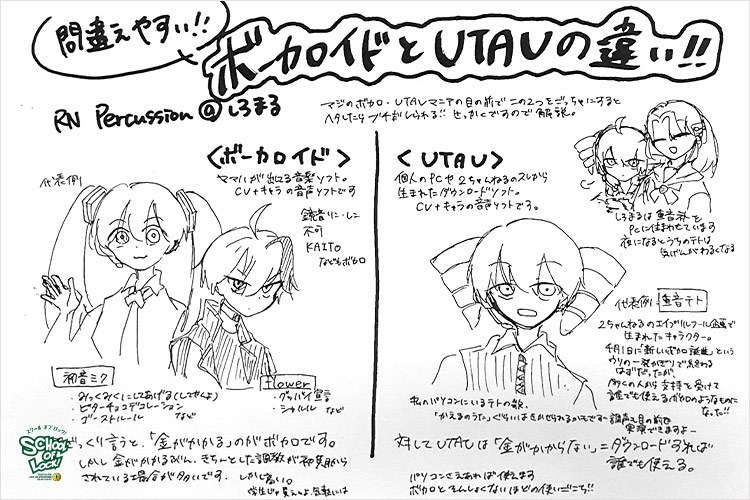 間違えやすい!!
ボカロイドとUTAUの違い!!
RN Percussion@しろまる
マジのボカロ・UTAUマニアの目の前でこの2つをごっちゃにすると
ヘタしたらブチギレられる!! せっかくですので解説。
<ボーカロイド>
代表例
ヤマハが出してる音楽ソフト。
CV+キャラの音声ソフトです
鏡音リン・レン
KAITO
などもボカロ
初音ミク
・みっくみくにしてあげる(してやんよ)
・ビターチョコデコレーション
・ゴーストルール など
flower
・グッバイ宣言
・シャルル など
ざっくり言うと、「金がかかる」のがボカロです。
しかし金がかかるぶん、きちんとした調教が初期から
されている場合が多いです。しかし高い。
<UTAU>
個人のPCや2ちゃんねるのスレから
生まれたダウンロードソフト。
CV+キャラの音声ソフトです。
しろまるは重音テトと
PCに住まわせています
夜になるとうちのテトは
きげんがわるくなる
代表例 重音テト
2ちゃんねるのエイプリルフール企画で
生まれたキャラクター。
4月1日に「新しいボカロ誕生」という
ウソの一発かぎりで終わる
はずだったが、
多くの人から支持を受けて
誰でも使えるボカロのようなものに
なった!!
私のパソコンにいるテトの歌、
「かえるのうた」ぐらいはきかせられるかもです…調声を目の前で
実現できますよー
対してUTAUは「金がかからない」=ダウンロードすれば
誰でも使える。
パソコンさえあれば使えます
ボカロとそんしょくないほどの使いごこち!!
スクール オブ ロック!
SCHOOL OF LOCK!